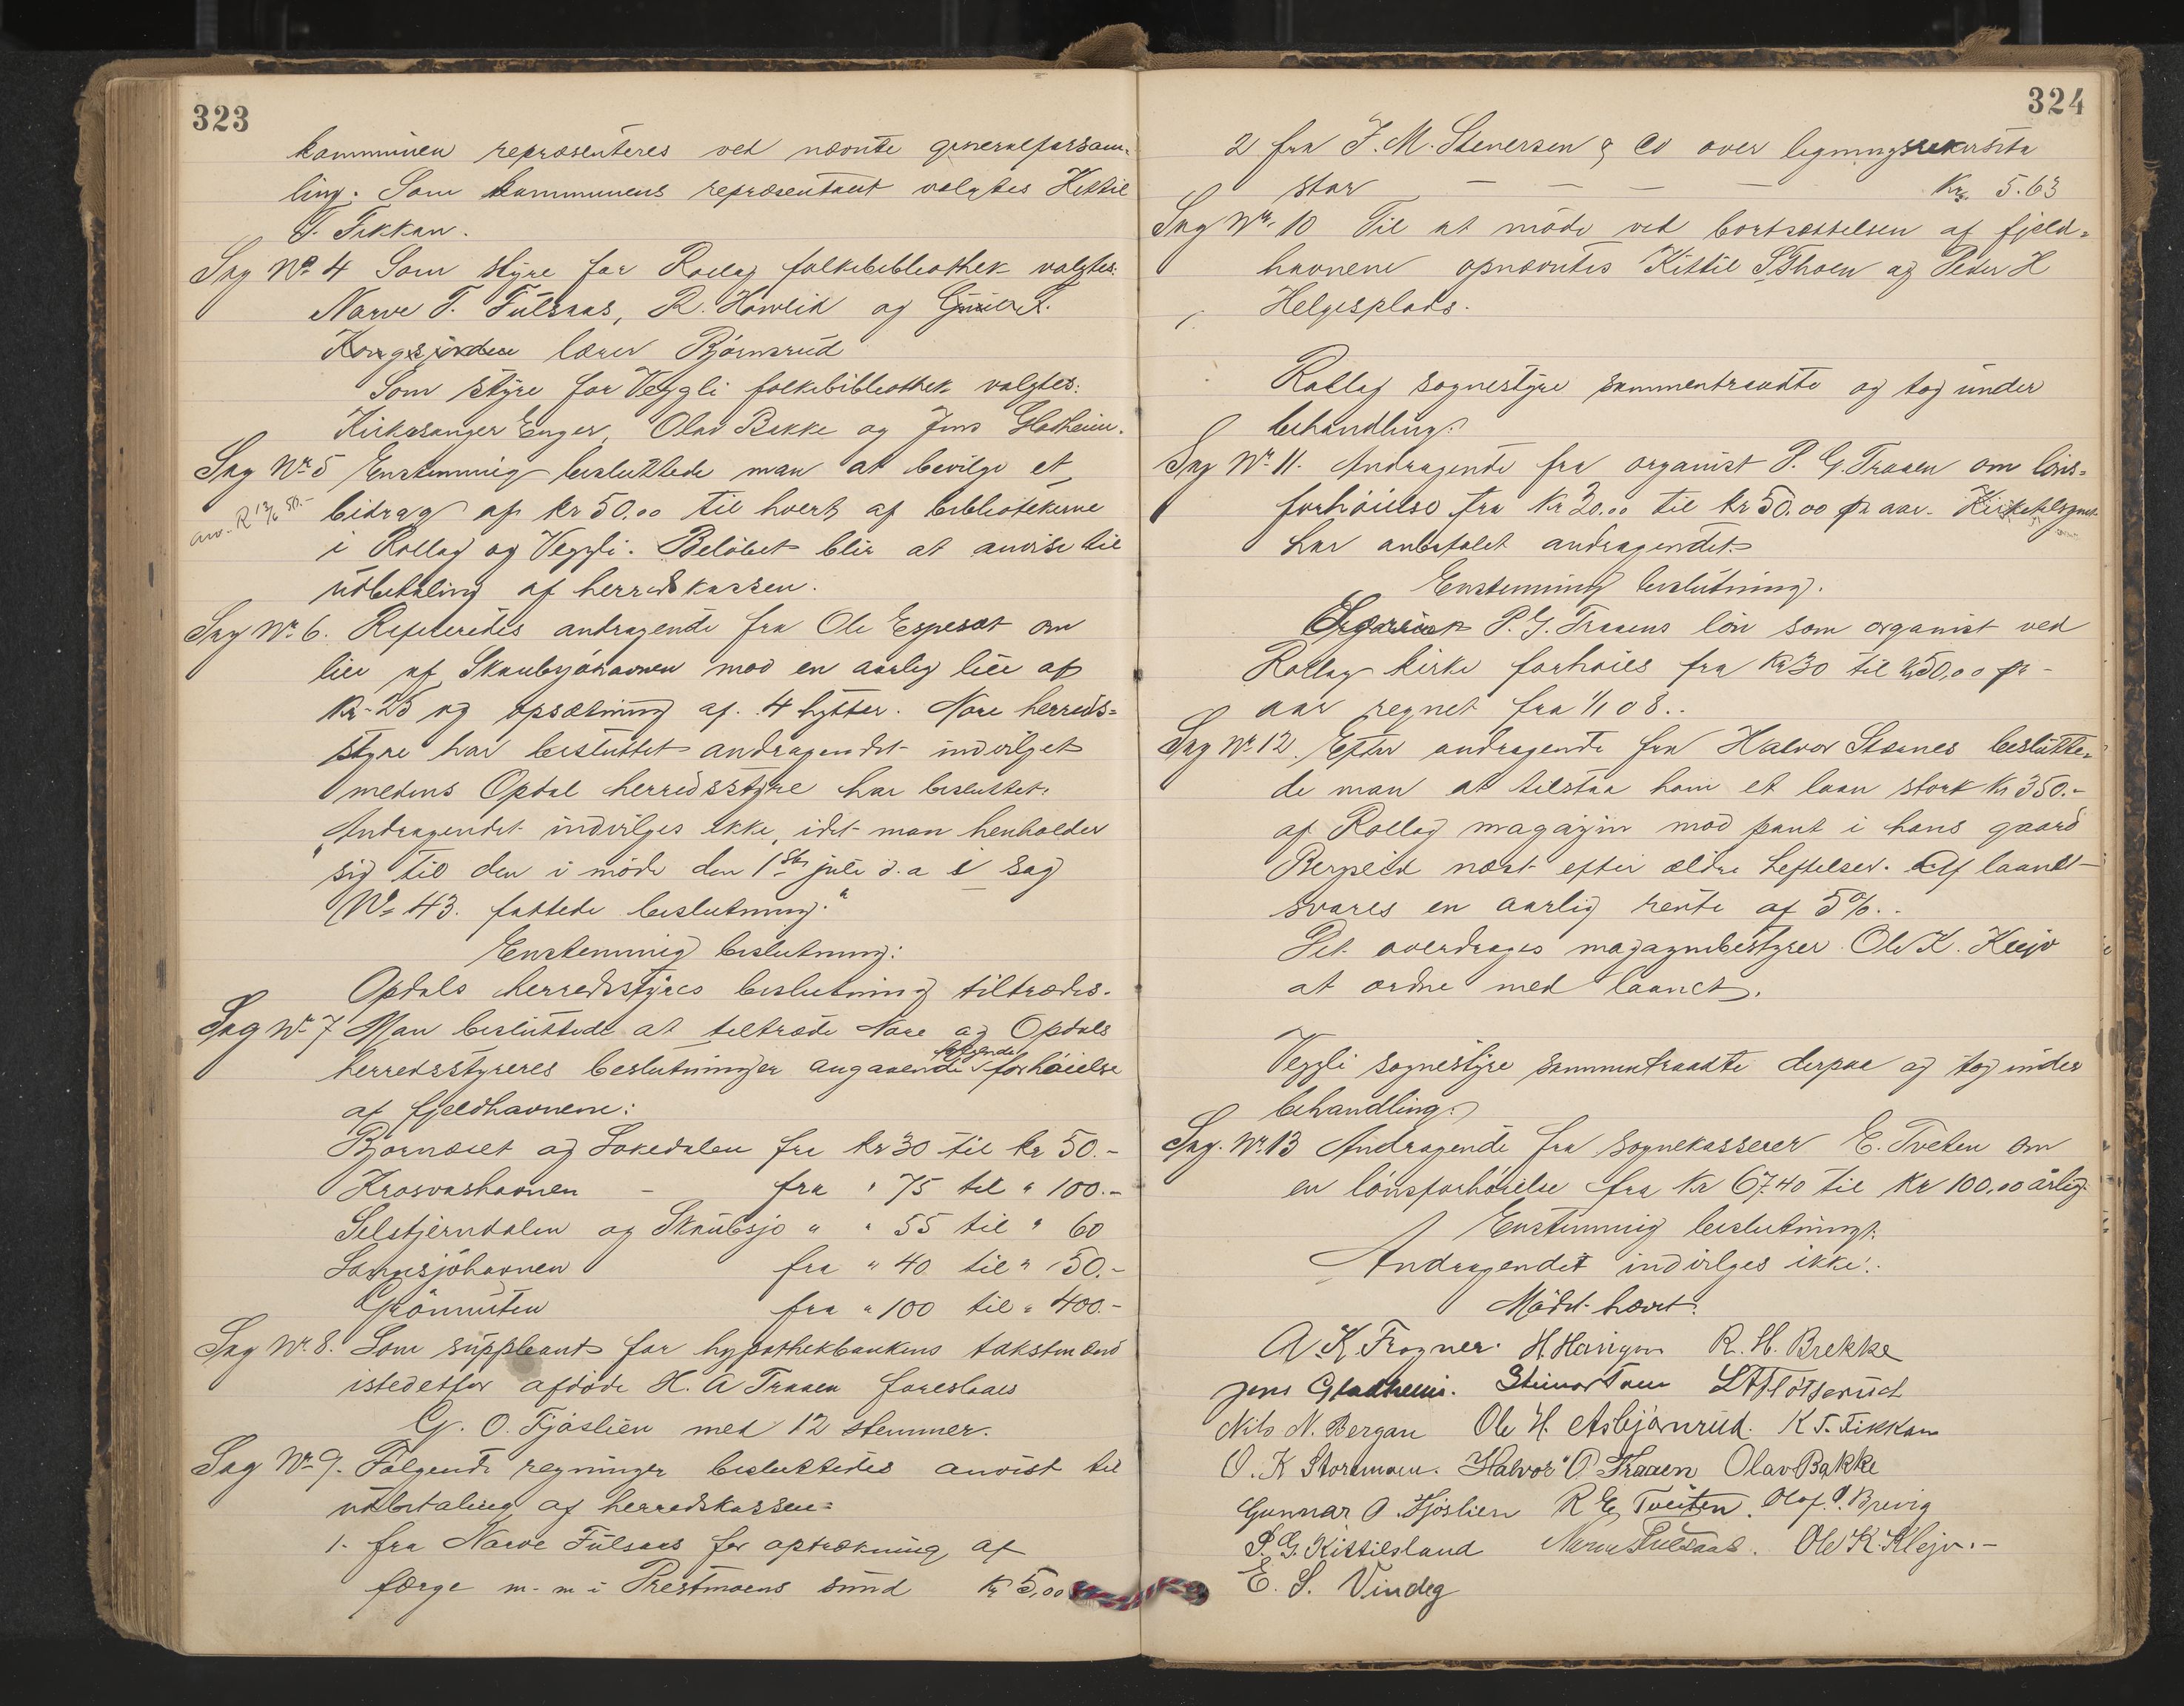 323
kommunen repræsenteres ved nævnte generalforsam-
ling. Som kommunens repræsentant valgtes Kittil
T. Fikkan.
Sag Nº 4 Som styre for Rollag folkebibliothek valgtes:
Narve T. Fulsaas, R. Howlid og
lærer Bjørnsrud
Som styre for Veggli folkebibliothek valgtes:
Kirkesanger Enger, Olav Bakke og Jens Gladheim.
Sag Nr 5 Enstemmig besluttede man at bevilge et
anv. R 12/6 50.-
bidrag af kr 50.00 til hvert af bibliotekerne
i Rollag og Veggli. Beløbet blir at anvise til
udbetaling af herredskassen.
Sag Nr 6. Refereredes andragende fra Ole Espeset om
leie af Skaubsjøhavnen mod en aarlig leie af
kr. 25 og opsætning af 4 hytter. Nore herreds=
styre har besluttet andragendet indvilget
medens Opdal herredsstyre har besluttet:
"Andragendet indvilges ikke, idet man henholder
sig til den i møde den 1ste juli d. a i sag
Nr 43. fattede beslutning."
Enstemmig beslutning:
Opdals herredsstyres beslutning tiltrædes.
Sag Nr 7 Man besluttede at tiltræde Nore og Opdals
følgende
herredsstyreres beslutninger angaaende forhøielse
af fjeldhavnene:
Bjørnaset og Lokedalen fra kr 30 til kr 50.-
Krosvashavnen - fra " 75 til " 100.-
Selstjerndalen og Skaubsjø " " 55 til " 60
Sangsjøhavnen fra " 40 til " 50.-
Grønnuten fra " 100 til " 400.-
Sag Nr 8. Som suppleant for hypothekbankens takstmænd
istedetfor afdøde H. A Traaen foreslaaes
G. O. Fjøslien med 12 stemmer.
Sag Nr 9. Følgende regninger besluttedes anvist til
udbetaling af herredskassen:
1. fra Narve Fulsaas for optrækning af
færge m. m i Prestmoens sund Kr 5,00
324
2 fra J. M. Stenersen & Co over ligningsrekvisita
stor - - - - Kr. 5.63
Sag Nr. 10 Til at møde ved bortsættelsen af fjeld=
havnene opnævntes Kittil S. Thoen og Peder H
Helgesplads.
Rollag sognestyre sammentraadte og tog under
behandling:
Sag Nr 11. Andragende fra organist P. G. Traaen om løns=
forhøielse fra Kr 30.00 til kr 50.00 pr aar.
har anbefalet andragendet.
Enstemmig beslutning.
Organist P. G. Traaens løn som organist ved
Rollag kirke forhøies fra Kr 30 til kr 50,00 pr
aar regnet fra 1/1 08..
Sag Nr 12. Efter andragende fra Halvor Stæsnes beslutte-
de man at tilstaa ham et laan stort kr 350.-
af Rollag magazin mod pant i hans gaard
Bergelid næst efter ældre heftelser. Af laanet
svares en aarlig rente af 5%..
Det overdrages magazinbestyrer Ole K. Kleiv
at ordne med laanet.
Veggli sognestyre sammentraadte derpaa og tog under
behandling:
Sag. Nr. 13 Andragende fra sognekasserer E. Tveten om
en lønsforhøielse fra Kr 67.40 til Kr 100,00 årlig.
Enstemmig beslutning:
Andragendet indvilges ikke.
Mødet hævet.
A. K. Frogner. H. Haugen R. H. Brekke
Jens Gladheim. Steinar Traaen L. T. Fløtterud
Nils N. Bergan Ole H. Asbjørnrud. K T. Fikkan
O. K Stormoen. Halvor O. Traaen Olav Bakke
Gunnar O. Fjøslien R E Tveiten. Olaf O. Brevig
P. G. Kittilsland Narve Fulsaas. Ole K. Klejv.-
E. S. Vindeg